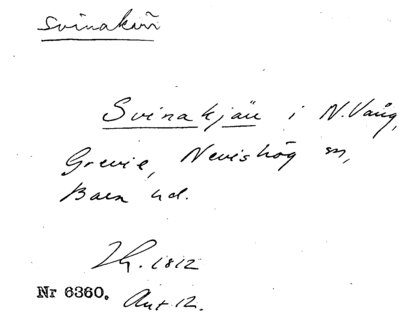 Svinakärr
Svinakjän i N. Vång,
Grevie, Nevishög sn,
Bara hd.
Lh. 1812
Nr 6360. Akt 12.